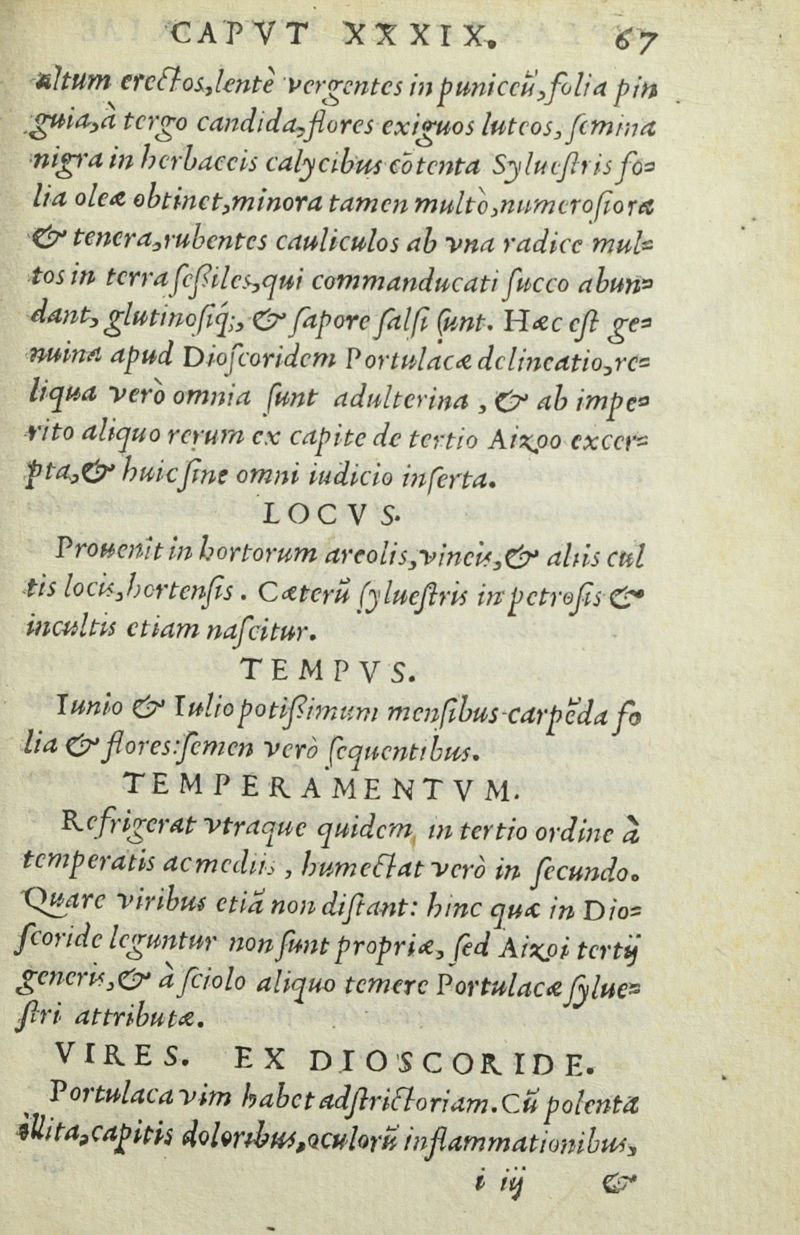 CAPVT XXXIX. 67
altum erectos, lentè vergentes in puniceũ, folia pin
guia, à tergo candida, flores exiguos luteos, semina
nigra in herbaceis calycibus cõtenta Syluestris fo=
lia oleæ obtinet, minora tamen multò, numerosiora
& tenera, rubentes cauliculos ab vna radice mul=
tos in terra seßiles, qui commanducati succo abun=
dant, glutinosiq́;, & sapore salsi sunt. Hæc est ge=
nuina apud Dioscoridem Portulacæ delineatio, re=
liqua verò omnia sunt adulterina, & ab impe=
rito aliquo rerum ex capite de tertio Aizoo excer=
pta, & huic sine omni iudicio inserta.
LOCVS.
Prouenit in hortorum areolis, vineis, & aliis cul
tis locis, hortensis. Cæterũ syluestris in petrosis &
incultis etiam nascitur.
TEMPVS.
Iunio & Iulio potißimum mensibus carpẽda fo
lia & flores: semen verò sequentibus.
TEMPERAMENTVM.
Refrigerat vtraque quidem in tertio ordine à
temperatis ac mediis, humectat verò in secundo.
Quare viribus etiã non distant: hinc quæ in Dio=
scoride leguntur non sunt propriæ, sed Aizoi tertij
generis, & à sciolo aliquo temere Portulacæ sylue=
stri attributæ.
VIRES. EX DIOSCORIDE.
Portulaca vim habet adstrictoriam. Cũ polenta
illita, capitis doloribus, oculorũ inflammationibus,
i iij &